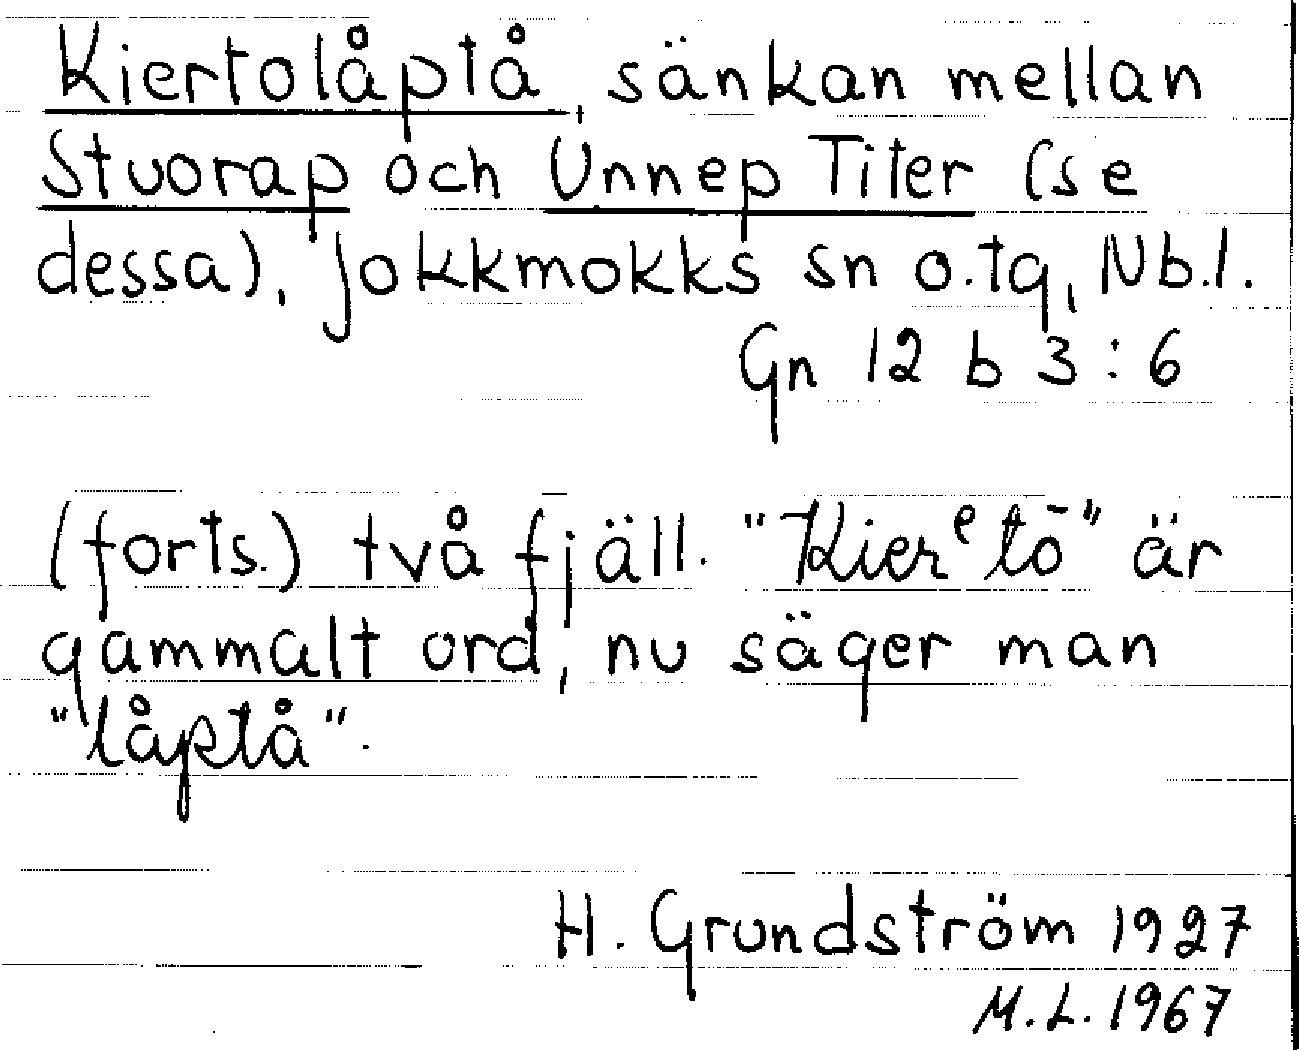 Kiertolåptå, sänkan mellan
Stuorap och Unnep Titer (se
dessa), Jokkmokks sn o. tg, Nb.l.
Gn 12 b 3:6
(forts.) två fjäll. "Kierᵉtō" är
gammalt ord, nu säger man
"låptå".
H. Grundström 1927
M.L. 1967